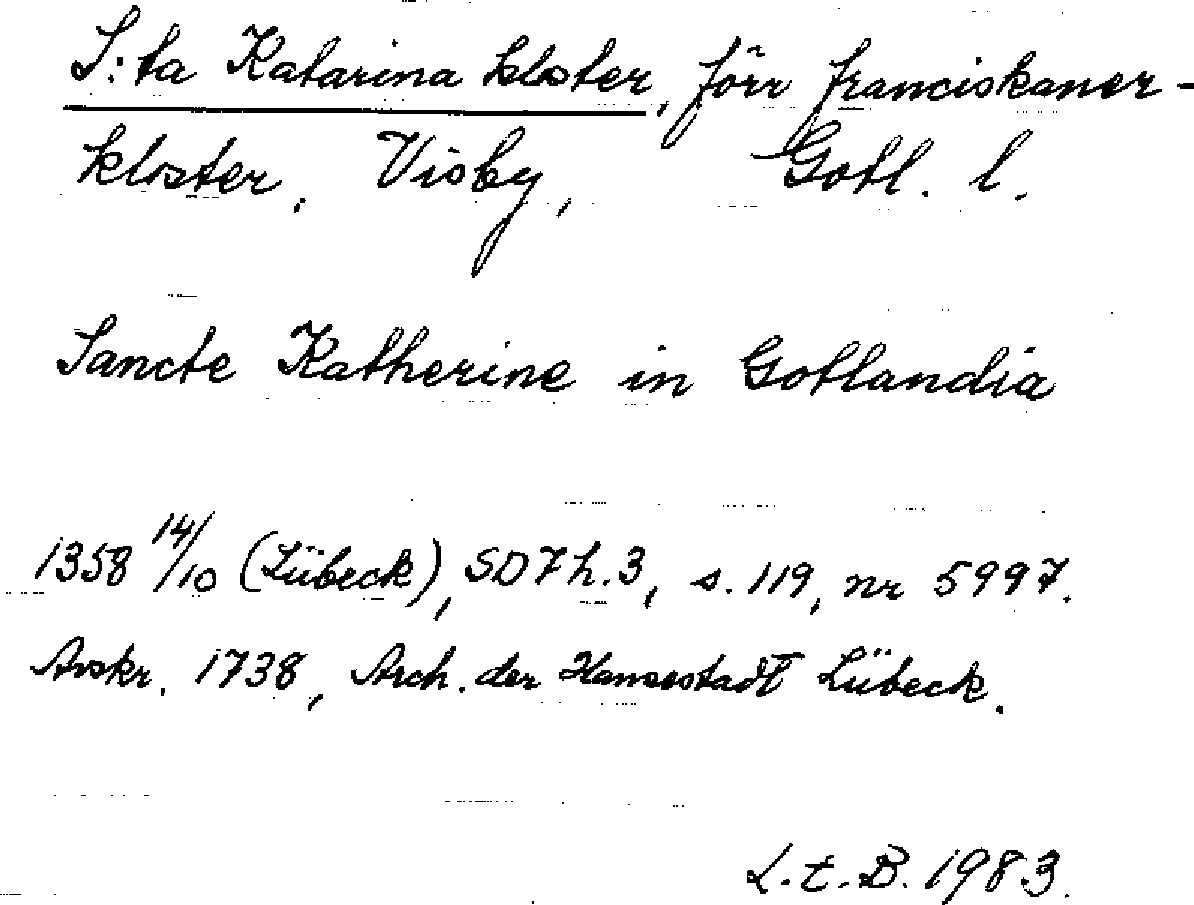 S:ta Katarina kloster, förr franciskaner-
kloster, Visby, Gotl. l.
Sancte Katherine in Gotlandia
1358 14/10 (Lübeck), SD7h.3, s.119, nr 5997.
Avskr. 1738, Arch. der Hansestadt Lübeck.
L.t.B. 1983.